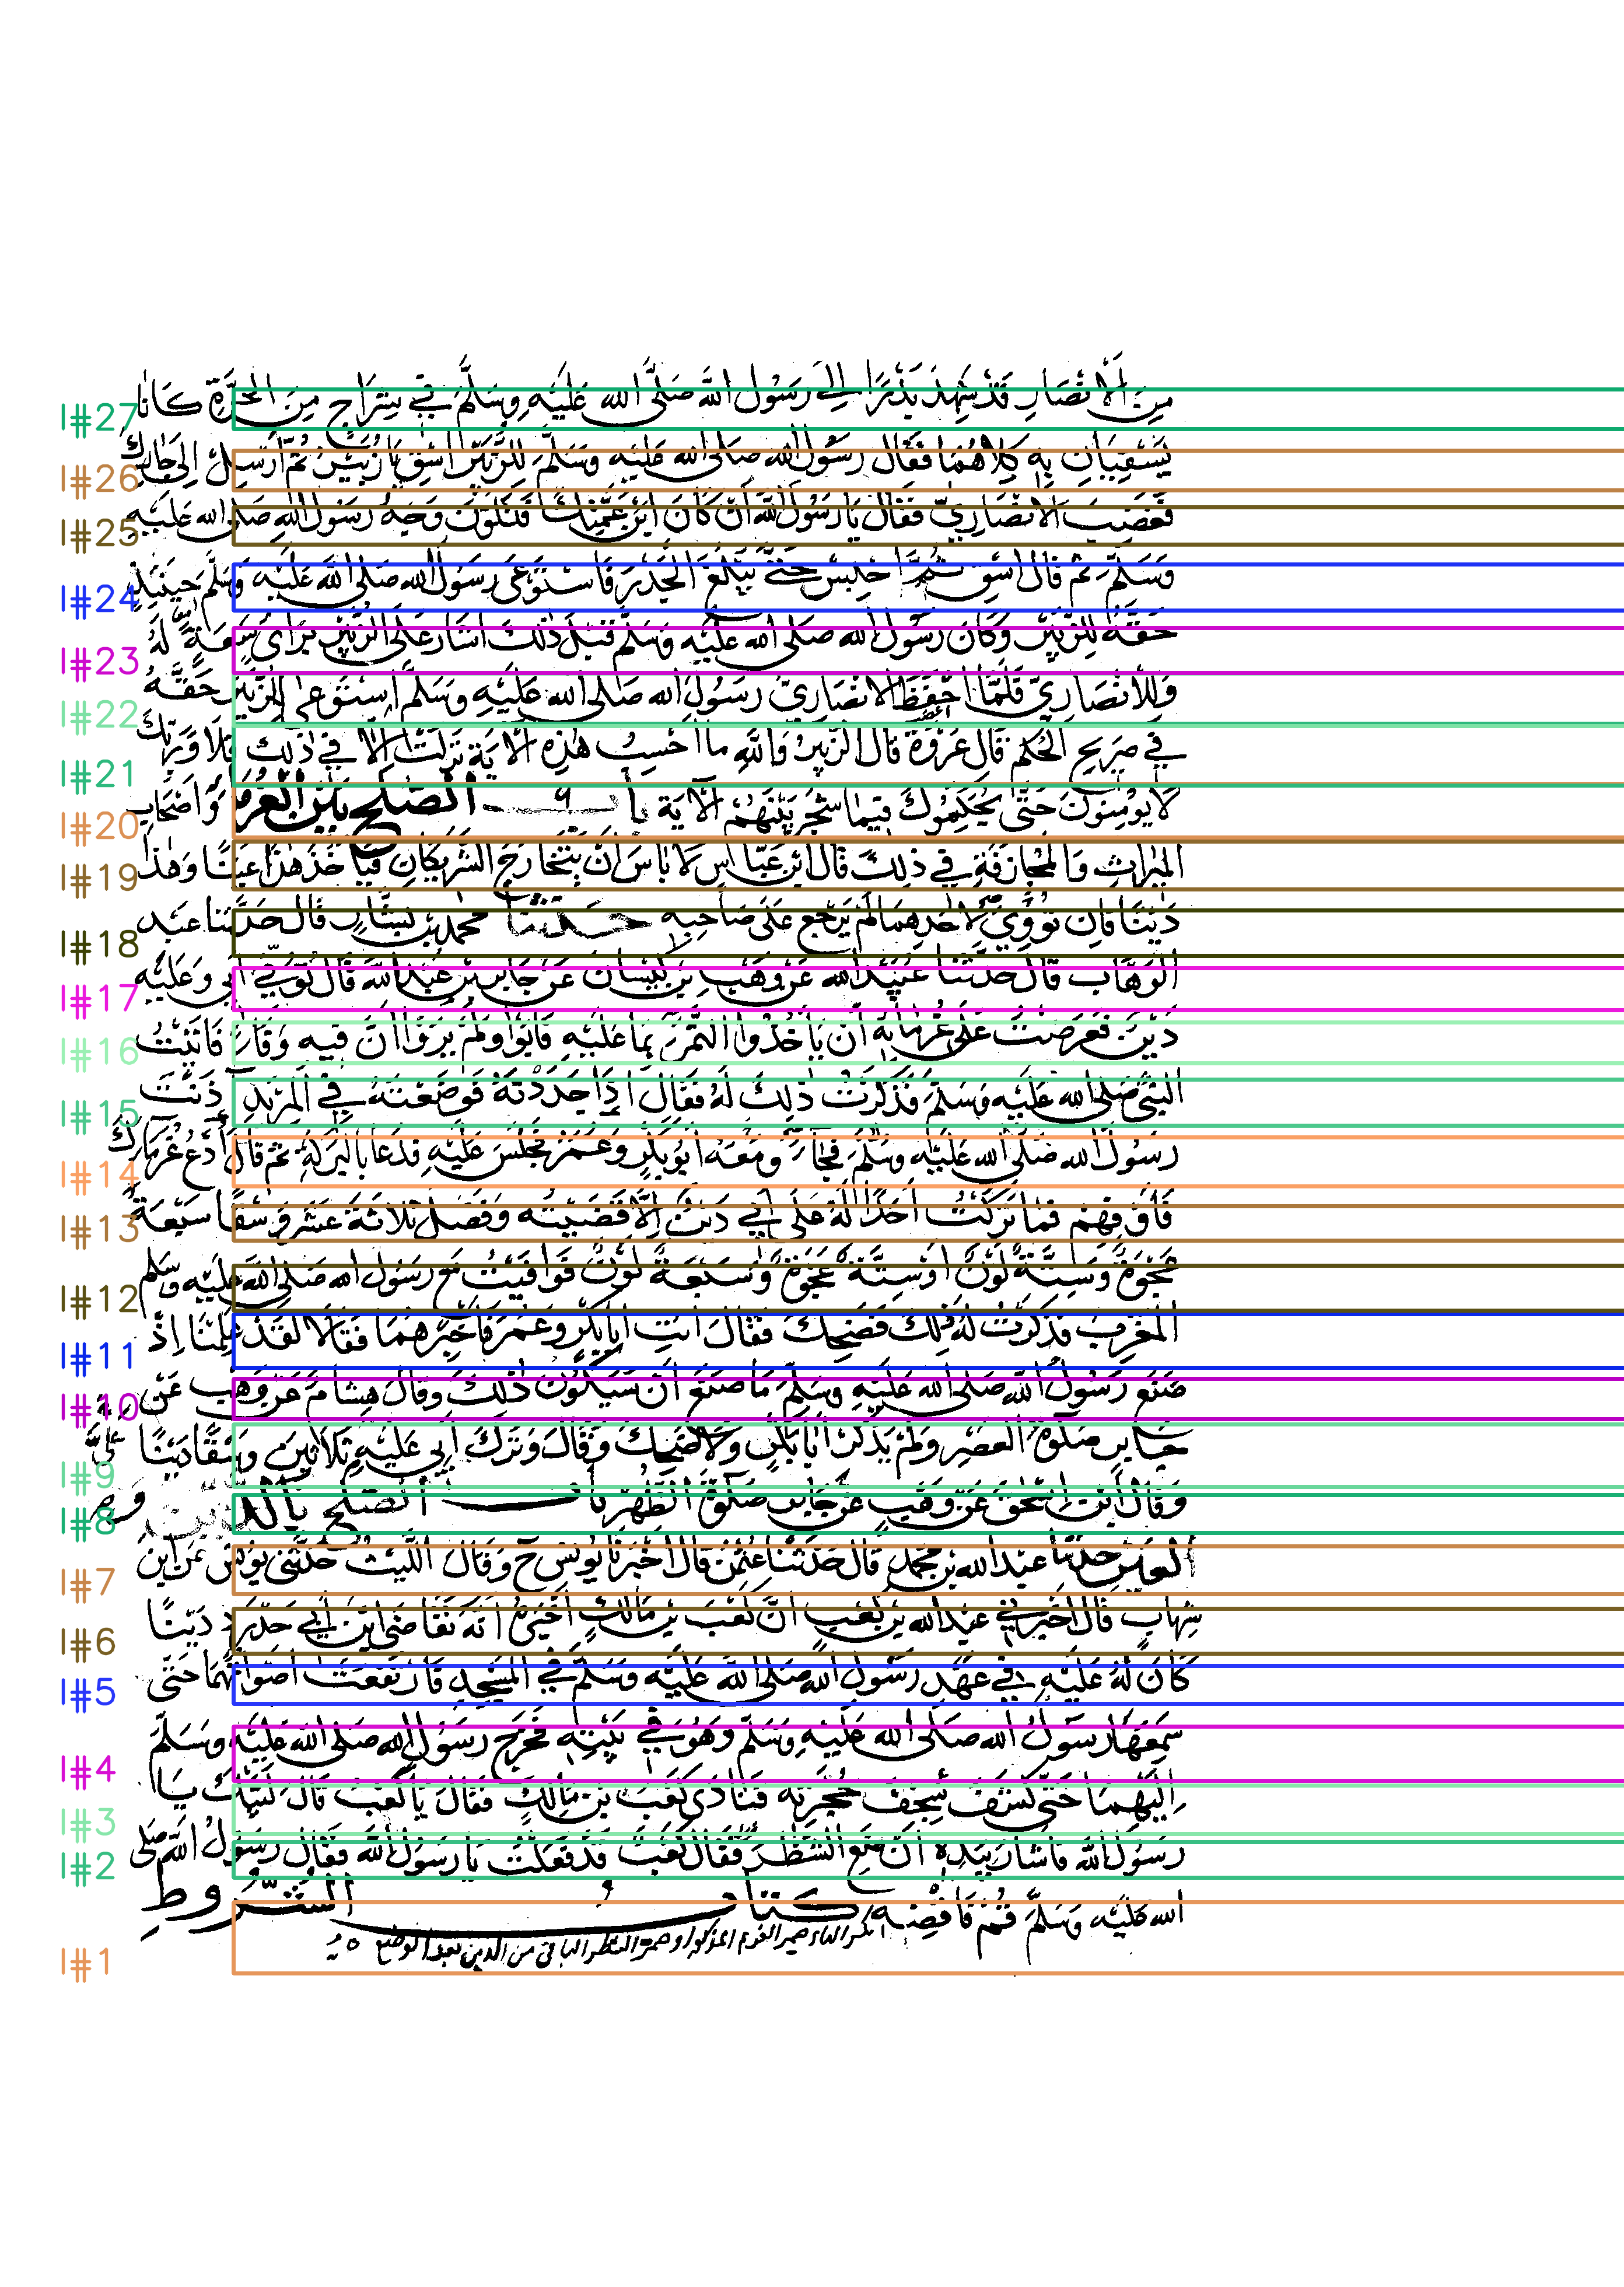 من الانصار قد شهد بدرا الى رسول الله صلى الله عليه وسلم في شراج من الحرة كانا
يسقيان به كلاهما فقال رسول الله صلى الله عليه وسلم للزبير اسق يا زبير ثم ارسل الى جارك
فغضب الانصاري فقال يا رسول الله آن كان ابن عمتك فتلون وجه رسول الله صلى الله عليه
وسلم ثم قال اسق ثم احبس حتى يبلغ الجدر فاستوعى رسول الله صلى الله عليه وسلم حينئذ
حقه للزبير وكان رسول الله صلى الله عليه وسلم قبل ذلك اشار على الزبير براي سعة له
وللانصاري فلما احفظ الانصاري رسول الله صلى الله عليه وسلم استوعى للزبير حقه
في صريح الحكم قال عروة قال الزبير والله ما احسب هذه الآية نزلت الا في ذلك فلا وربك
لا يؤمنون حتى يحكموك فيما شجر بينهم الآية باب الصلح بين الغرماء واصحاب
الميراث والمجازفة في ذلك قال ابن عباس لا باس ان يتخارج الشريكان فياخذ هذا عينا وهذا
دينا فان توي لاحدهما لم يرجع على صاحبه حدثنا محمد بن بشار قال حدثنا عبد
الوهاب قال حدثنا عبيد الله عن وهب بن كيسان عن جابر بن عبد الله قال توفي ابي وعليه
دين فعرضت على غرمائه ان ياخذوا التمر بما عليه فابوا ولم يروا ان فيه وفاء فاتيت
النبي صلى الله عليه وسلم فذكرت ذلك له فقال اذا جددته فوضعته في المربد آذنت
رسول الله صلى الله عليه وسلم فجاء ومعه ابو بكر وعمر فجلس عليه فدعا بالبركة ثم قال ادع غرماءك
فاوفهم فما تركت احدا له على ابي دين الا قضيته وفضل ثلاثة عشر وسقا سبعة
عجوة وستة لون او ستة عجوة وسبعة لون فوافيت مع رسول الله صلى الله عليه وسلم
المغرب فذكرت له ذلك فضحك فقال ائت ابا بكر وعمر فاخبرهما فقالا لقد علمنا اذ
صنع رسول الله صلى الله عليه وسلم ما صنع ان سيكون ذلك وقال هشام عن وهب عن
جابر صلوة العصر ولم يذكر ابا بكر ولا ضحك وقال وترك ابي عليه ثلاثين وسقا دينا
وقال ابن اسحق عن وهب عن جابر صلوة الظهر باب الصلح بالدين
والعين حدثنا عبد الله بن محمد قال حدثنا عثمن قال اخبرنا يونس ح وقال الليث حدثني يونس عن ابن
شهاب قال اخبرني عبد الله بن كعب ان كعب بن مالك اخبره انه تقاضى ابن ابي حدرد دينا
كان له عليه في عهد رسول الله صلى الله عليه وسلم في المسجد فارتفعت اصواتهما حتى
سمعها رسول الله صلى الله عليه وسلم وهو في بيته فخرج رسول الله صلى الله عليه وسلم
اليهما حتى كشف سجف حجرته فنادى كعب بن مالك فقال يا كعب قال لبيك يا
رسول الله فاشار بيده ان ضع الشطر فقال كعب قد فعلت يا رسول الله فقال رسول الله صلى
الله عليه وسلم قم فاقضه كتاب الشروط